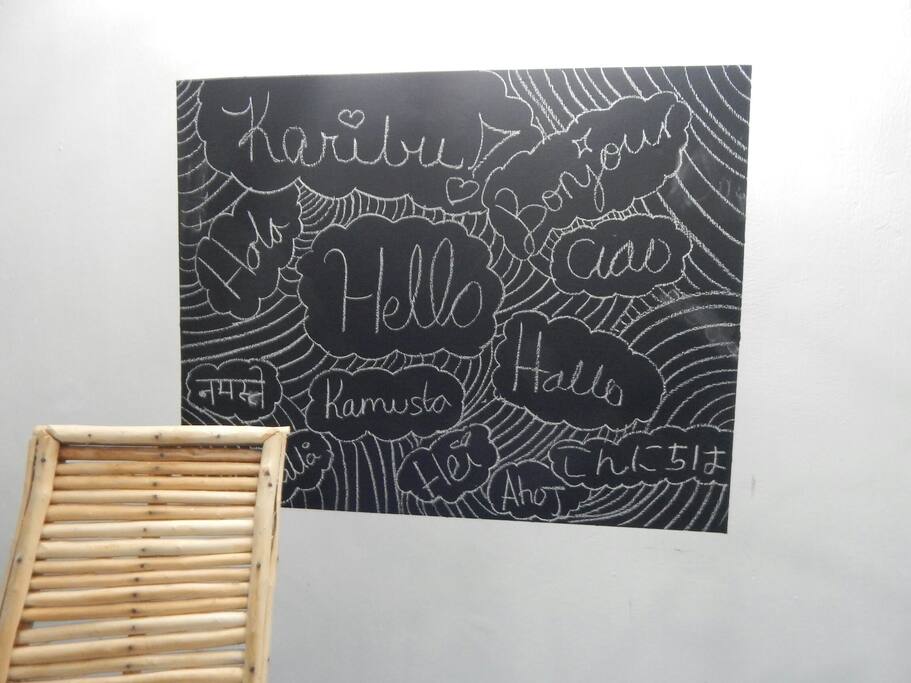 Karibu!
Bonjour
Hola
Hello
Ciao
नमस्ते
Kamusta
Hallo
Hei
Ahoj
こんにちは